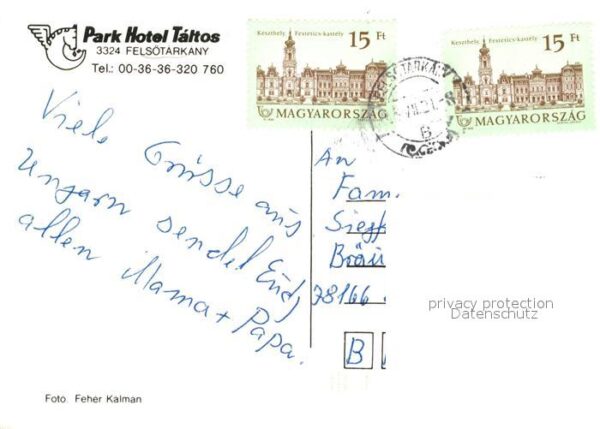 Park Hotel Táltos
3324 FELSŐTARKANY
Tel.: 00-36-36-320 760
Keszthely, Festetics-kastély
15 Ft
MAGYARORSZÁG
Keszthely, Festetics-kastély
15 Ft
MAGYARORSZÁG
FELSŐTÁRKÁNY
B
Viele Grüsse aus
Ungarn sendet Euch
allen Mama + Papa.
An
Fam.
Sieg
Bräu
78166
B
privacy protection
Datenschutz
Foto: Feher Kalman